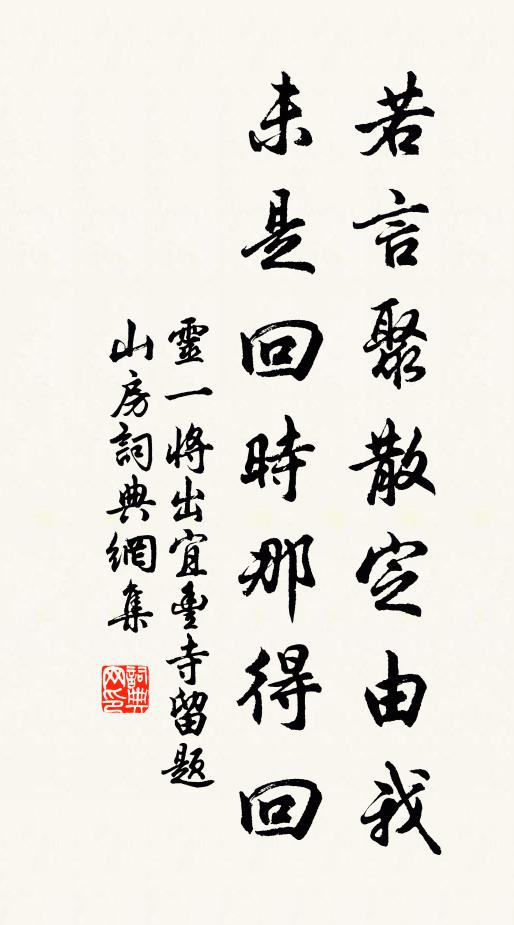 若言聚散定由我
未是回時那得回
靈一將出宜豐寺留題
山房詞典網集
詞典網印